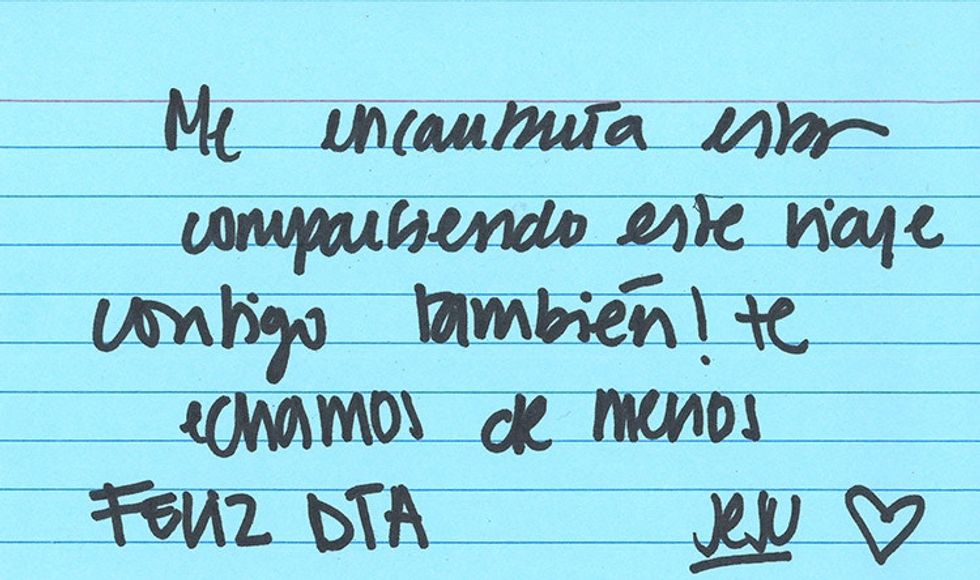 Me encantaría estar
compartiendo este viaje
contigo también! te
echamos de menos
FELIZ DÍA jesu